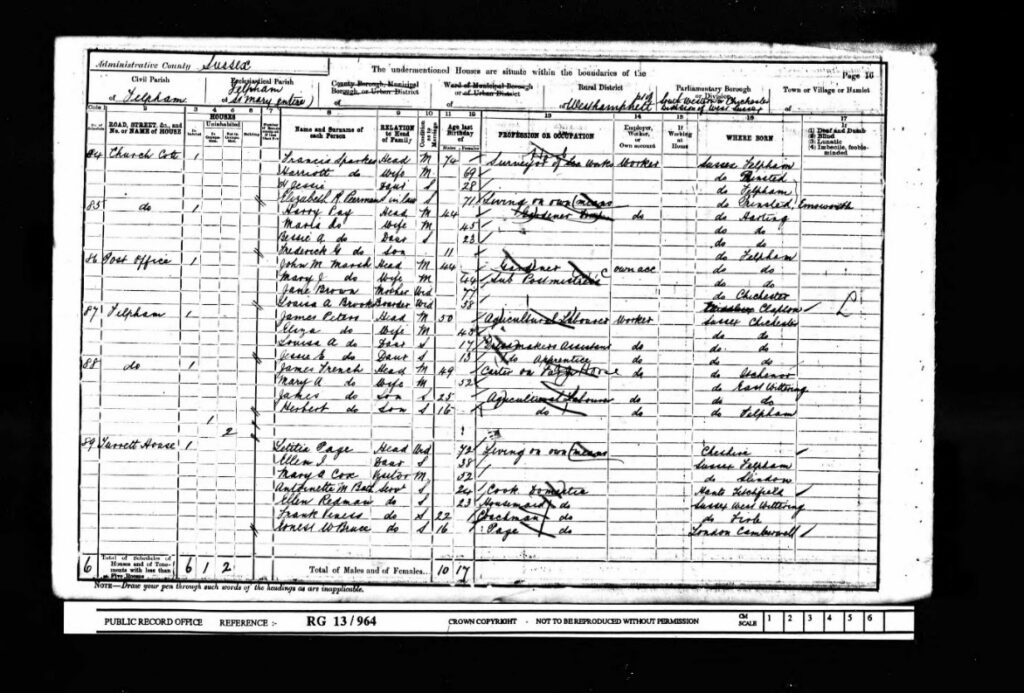 Administrative County Sussex
The undermentioned Houses are situate within the boundaries of the
Page 16
Civil Parish
of Felpham
Ecclesiastical Parish
Felpham
of St Mary (entire)
County Borough, Municipal
Borough, or Urban District
of
Ward of Municipal Borough
or of Urban District
of
Rural District
of Westhampnett
Parliamentary Borough
or Division
of
Town or Village or Hamlet
of
ROAD, STREET, &c., and No. or NAME of HOUSE
HOUSES
Uninhabited
Name and Surname of each Person
RELATION to Head of Family
Age last Birthday
PROFESSION OR OCCUPATION
Employer, Worker, or Own account
If Working at Home
WHERE BORN
(1) Deaf and Dumb
(2) Blind
(3) Lunatic
(4) Imbecile, feeble-minded
84 Church Cott 1 Francis Sparkes Head M 74 Surveyor of Worker Sussex Felpham
Harriott do Wife M 69 do
H Jessie Daur S 28 do Felpham
Elizabeth R in law S 71 Living on own means do Emsworth
85 do 1 Harry Pay Head M 44 Gardener do do Harting
Maria do Wife M 45 do do
Bessie A. do Daur S 23 do do
Frederick G. do Son 11 do Felpham
86 Post Office 1 John M. Marsh Head M 44 Gardener own acc do do
Mary J. do Wife M 44 Sub Postmistress do do
Jane Brown Mother Wid 77 do Chichester
Louisa A Brook Boarder Wid 58 Clapton
87 Felpham 1 James Peters Head M 50 Agricultural Labourer Worker Sussex Chichester
Eliza do Wife M 45 do do
Louisa A do Daur S 17 Dressmakers Assistant do do do
Jessie E do Daur S 15 do Apprentice do do do
88 do 1 James French Head M 49 Carter on Farm do do Itchenor
Mary A do Wife M 52 do East Wittering
James do Son S 25 Agricultural Labourer do do do
Herbert do Son S 16 do do do Felpham
1
2
89 Turrett House 1 Letitia Page Head Wid 72 Living on own means Cheshire
Ellen J. Daur S 38 Sussex Felpham
Mary A Cox Visitor M 52 do Slindon
Antoinette M Serv S 24 Cook Domestic Hants Titchfield
Ellen Redman do S 23 Housemaid do Sussex West Wittering
Frank do S 22 Coachman do do Firle
Ernest W Bruce do S 16 Page do London Camberwell
6 Total of Schedules of Houses and of Tenements with less than Five Rooms 6 1 2 Total of Males and of Females... 10 17
NOTE—Draw your pen through such words of the headings as are inapplicable.
PUBLIC RECORD OFFICE REFERENCE :- RG 13/964 CROWN COPYRIGHT - NOT TO BE REPRODUCED WITHOUT PERMISSION CM SCALE 1 2 3 4 5 6